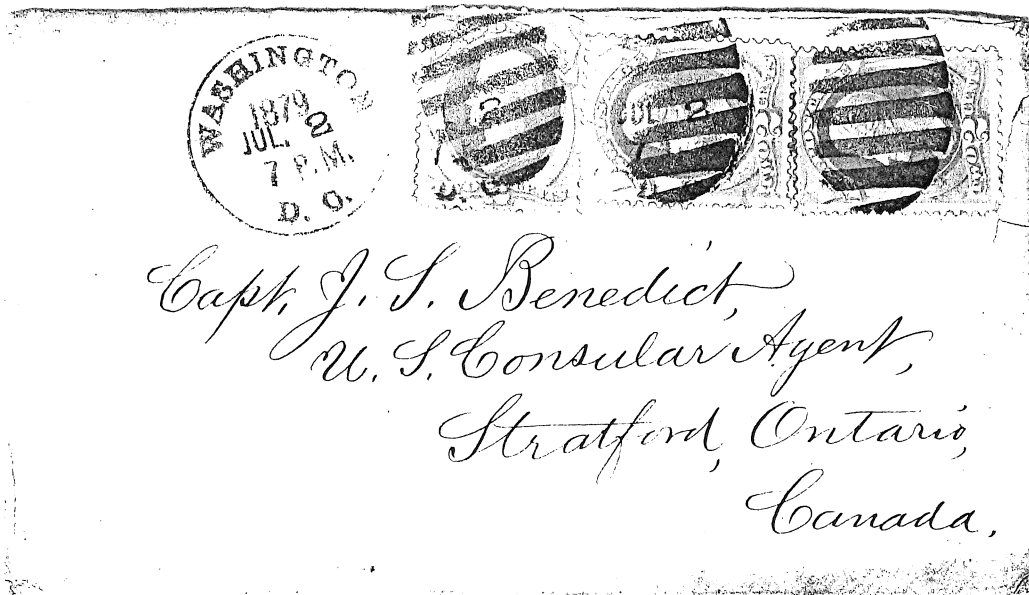 WASHINGTON
1879
JUL. 2
7 P.M.
D. C.
JUL 2
Capt. J. S. Benedict,
U. S. Consular Agent,
Stratford, Ontario,
Canada.